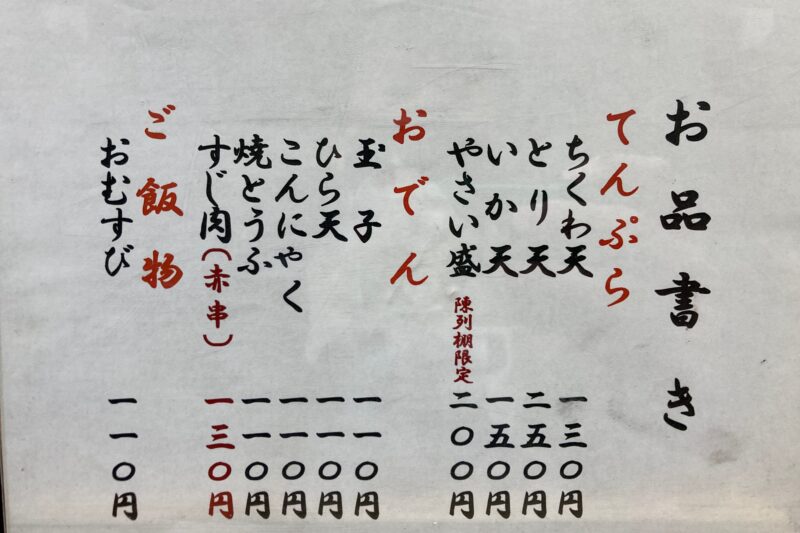 お品書き
てんぷら
ちくわ天 一三〇円
とり天 二五〇円
いか天 一五〇円
やさい盛 陳列棚限定 二〇〇円
おでん
玉子 一一〇円
ひら天 一一〇円
こんにゃく 一一〇円
焼とうふ 一一〇円
すじ肉(赤串) 一三〇円
ご飯物
おむすび 一一〇円